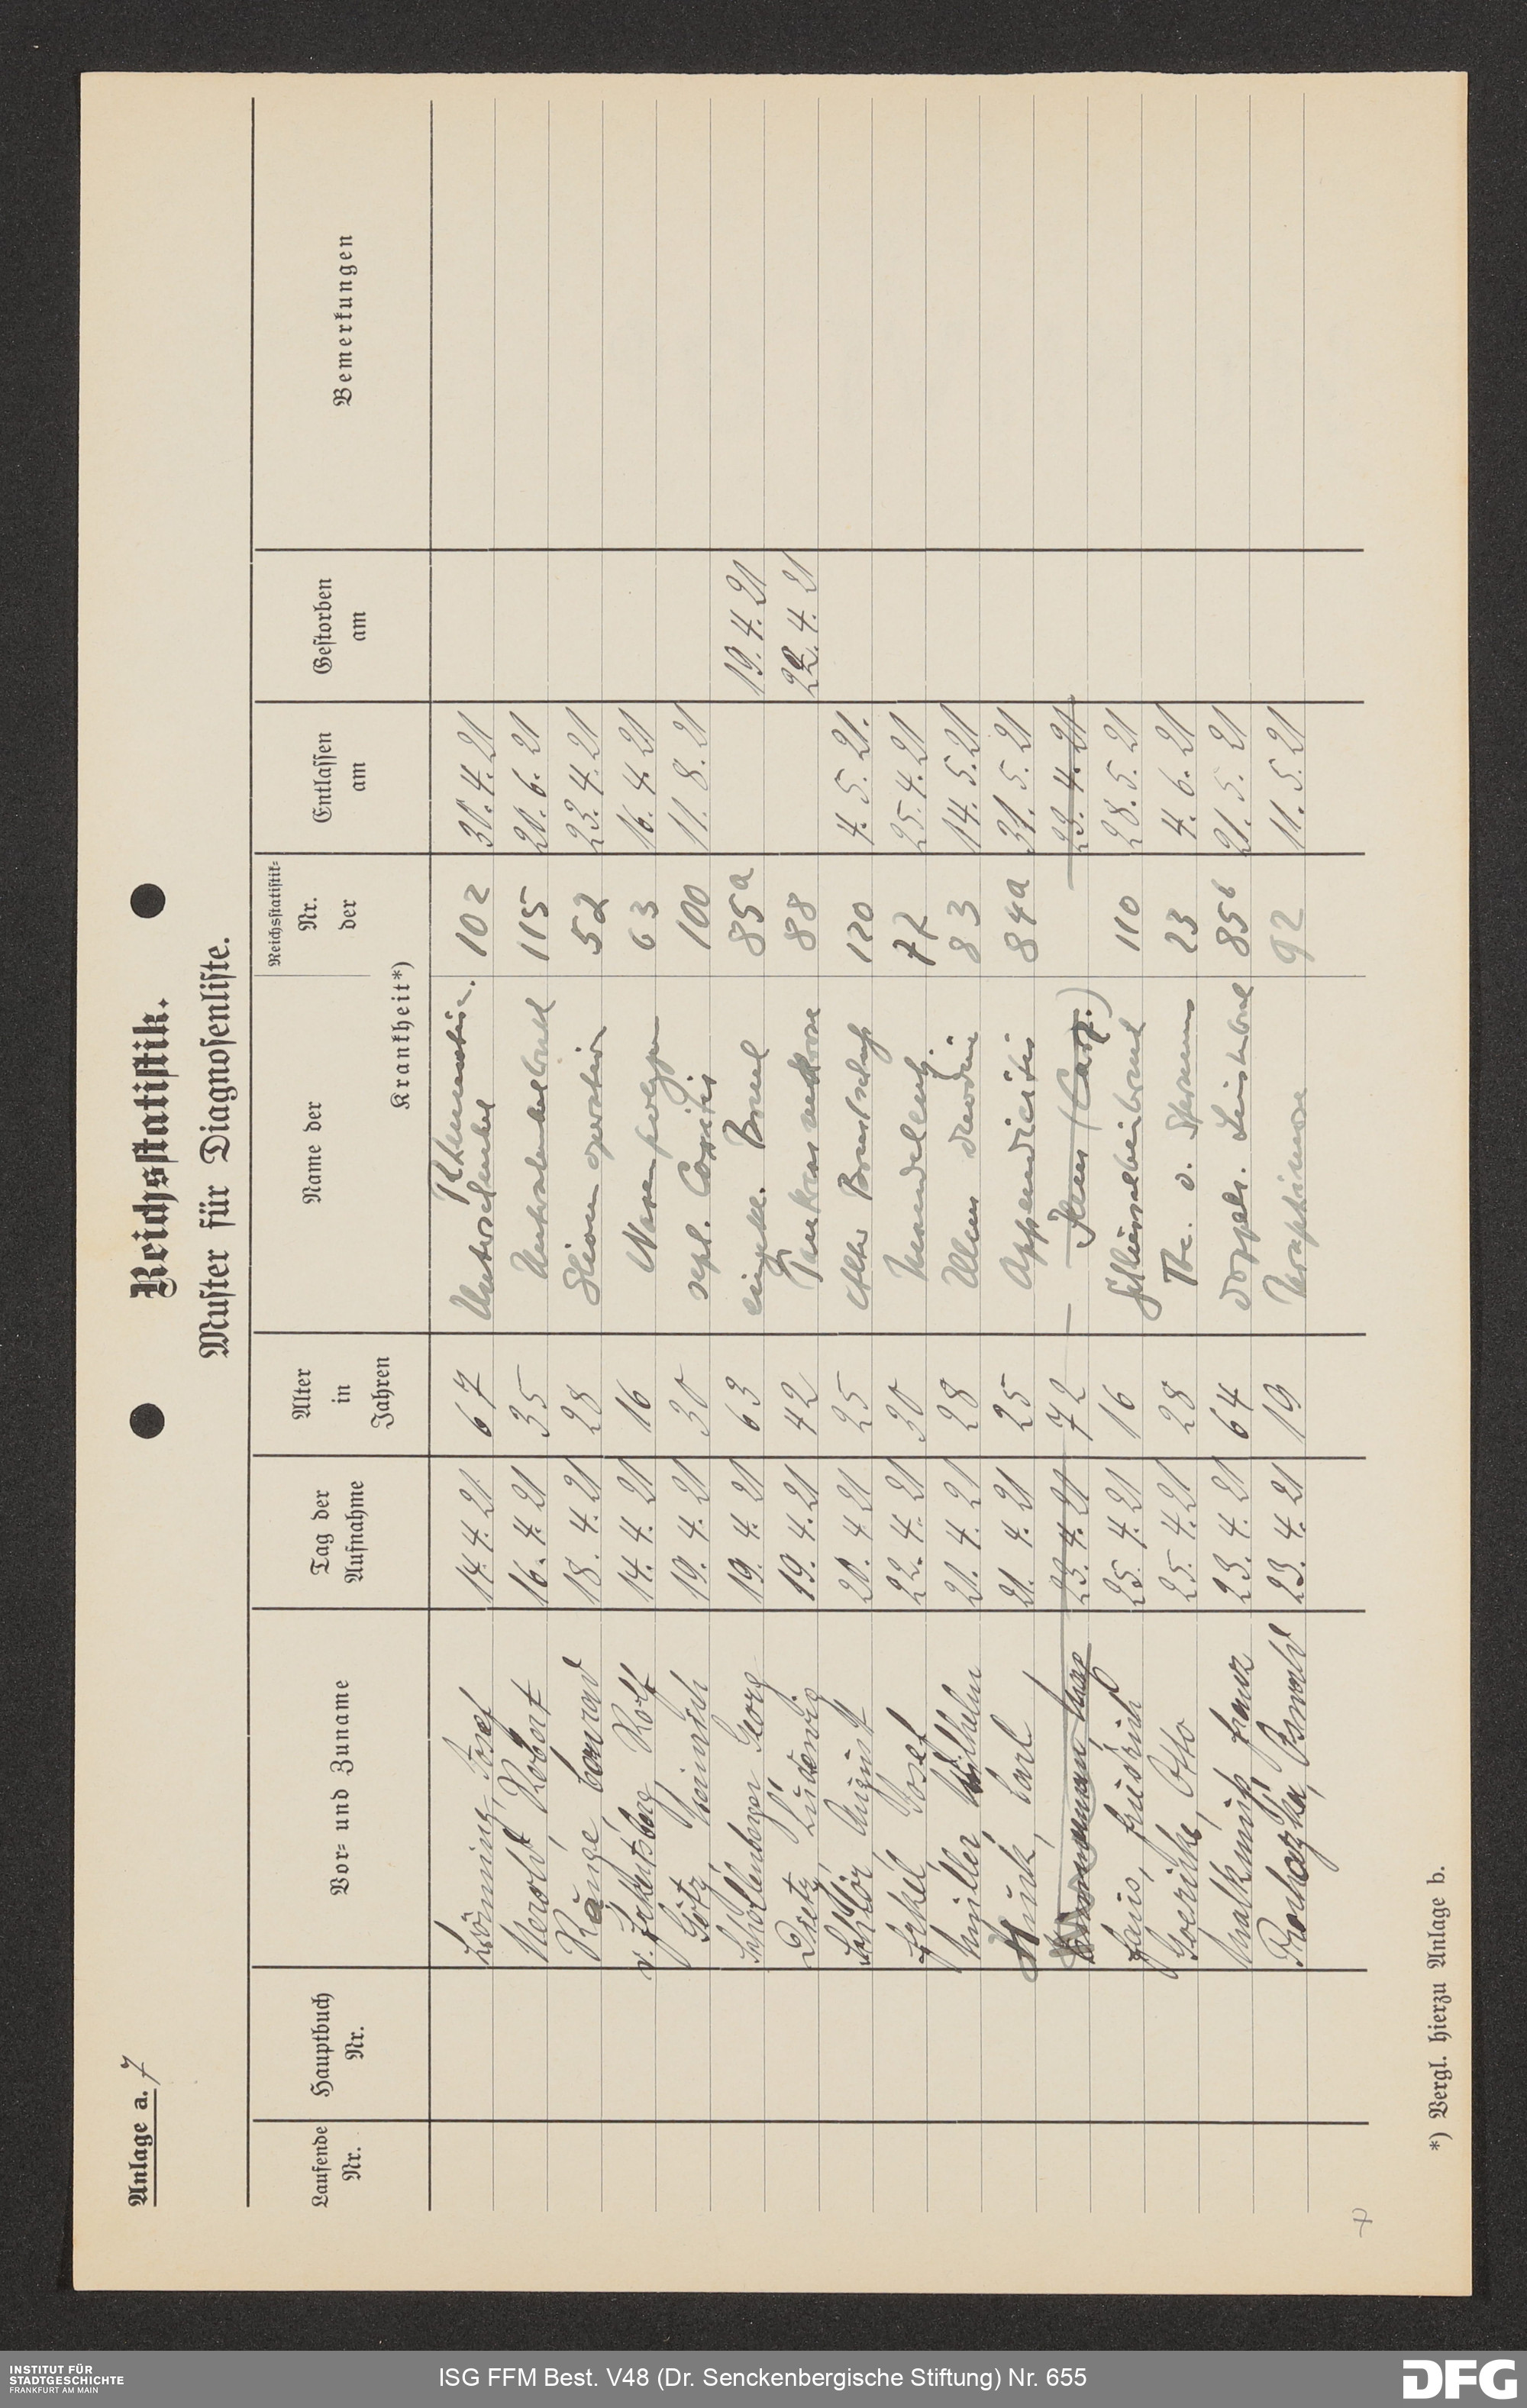 Anlage a. 7
Reichsstatistik.
Muster für Diagnosenliste.
Laufende Nr. Hauptbuch Nr. Vor- und Zuname Tag der Aufnahme Alter in Jahren Name der Reichsstatistik- Nr. der Krankheit*) Entlassen am Gestorben am Bemerkungen
Josef 14. 4. 21 67 Rheumatism. Unterschenkel 102 30. 4. 21
Herold, Robert 16. 4. 21 35 115 20. 6. 21
Runge, Conrad 18. 4. 21 28 52 23. 4. 21
v. Rolf 14. 4. 21 16 Nasenpolypen 63 16. 4. 21
Götz, Heinrich 19. 4. 21 30 sept. Coxitis 100 11. 8. 21
Schollenberger Georg 19. 4. 21 63 eingekl. Bruch 85a 19. 4. 21
Dietz, Ludewig 19. 4. 21 42 Pankreasnekrose 88 22. 4. 21
August 20. 4. 21 25 Alter 120 4. 5. 21.
Jekel Josef 22. 4. 21 30 77 25. 4. 21
Müller, Wilhelm 21. 4. 21 28 Ulcus duodeni 83 14. 5. 21
Munk, Carl 21. 4. 21 25 Appendicitis 84a 31. 5. 21
23. 4. 21 72 Ileus (Carz.) 23. 4. 21
Faus, Friedrich 25. 4. 21 16 Schlüsselbeinbruch 110 28. 5. 21
Goericke, Otto 25. 4. 21 28 Tbc. d. Sternums 23 4. 6. 21
Malkmus, Franz 23. 4. 21 64 doppels. Leistenbruch 85b 21. 5. 21
Prochazka, Oswald 23. 4. 21 19 Paraphimose 92 11. 5. 21
*) Vergl. hierzu Anlage b.
7
INSTITUT FÜR
STADTGESCHICHTE
FRANKFURT AM MAIN
ISG FFM Best. V48 (Dr. Senckenbergische Stiftung) Nr. 655
DFG